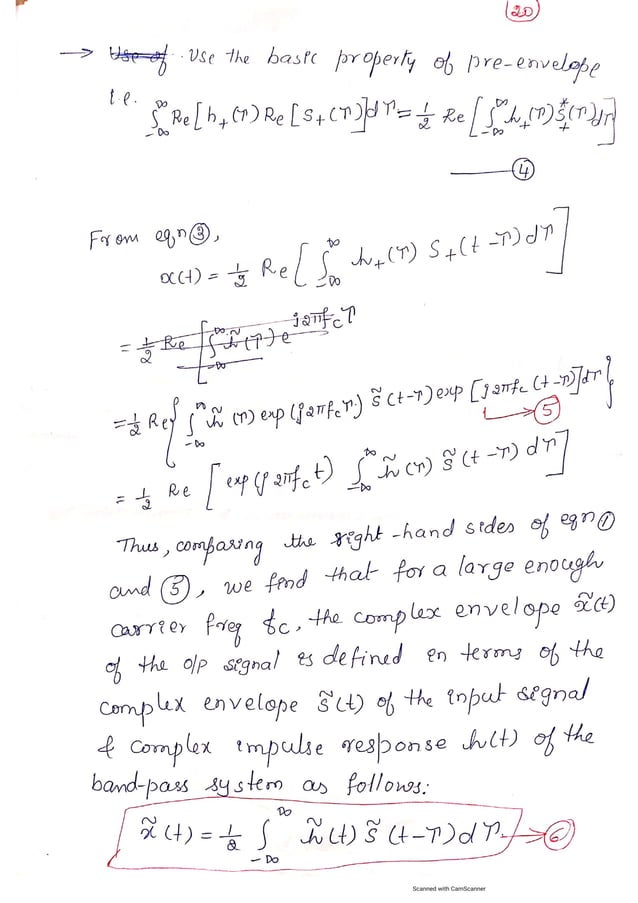 20
→ Use of. Use the basic property of pre-envelope
i.e. ∫_{-∞}^{∞} Re[h₊(τ) Re[S₊(τ)]dτ = 1/2 Re[∫_{-∞}^{∞} h₊(τ) S₊*(τ)dτ]
—— ④
From eqn ③,
x(t) = 1/2 Re[∫_{-∞}^{∞} h₊(τ) S₊(t-τ) dτ]
= 1/2 Re [∫_{-∞}^{∞} h̃(τ) e^{j2πfcτ}
= 1/2 Re{∫_{-∞}^{∞} h̃(τ) exp(j2πfcτ) s̃(t-τ) exp[j2πfc(t-τ)]dτ}
→ ⑤
= 1/2 Re [exp(j2πfct) ∫_{-∞}^{∞} h̃(τ) s̃(t-τ) dτ]
Thus, comparing the right-hand sides of eqn ①
and ⑤, we find that for a large enough
carrier freq fc, the complex envelope x̃(t)
of the o/p signal is defined in terms of the
complex envelope s̃(t) of the input signal
& complex impulse response h(t) of the
band-pass system as follows:
x̃(t) = 1/2 ∫_{-∞}^{∞} h̃(t) s̃(t-τ) dτ → ⑥
Scanned with CamScanner